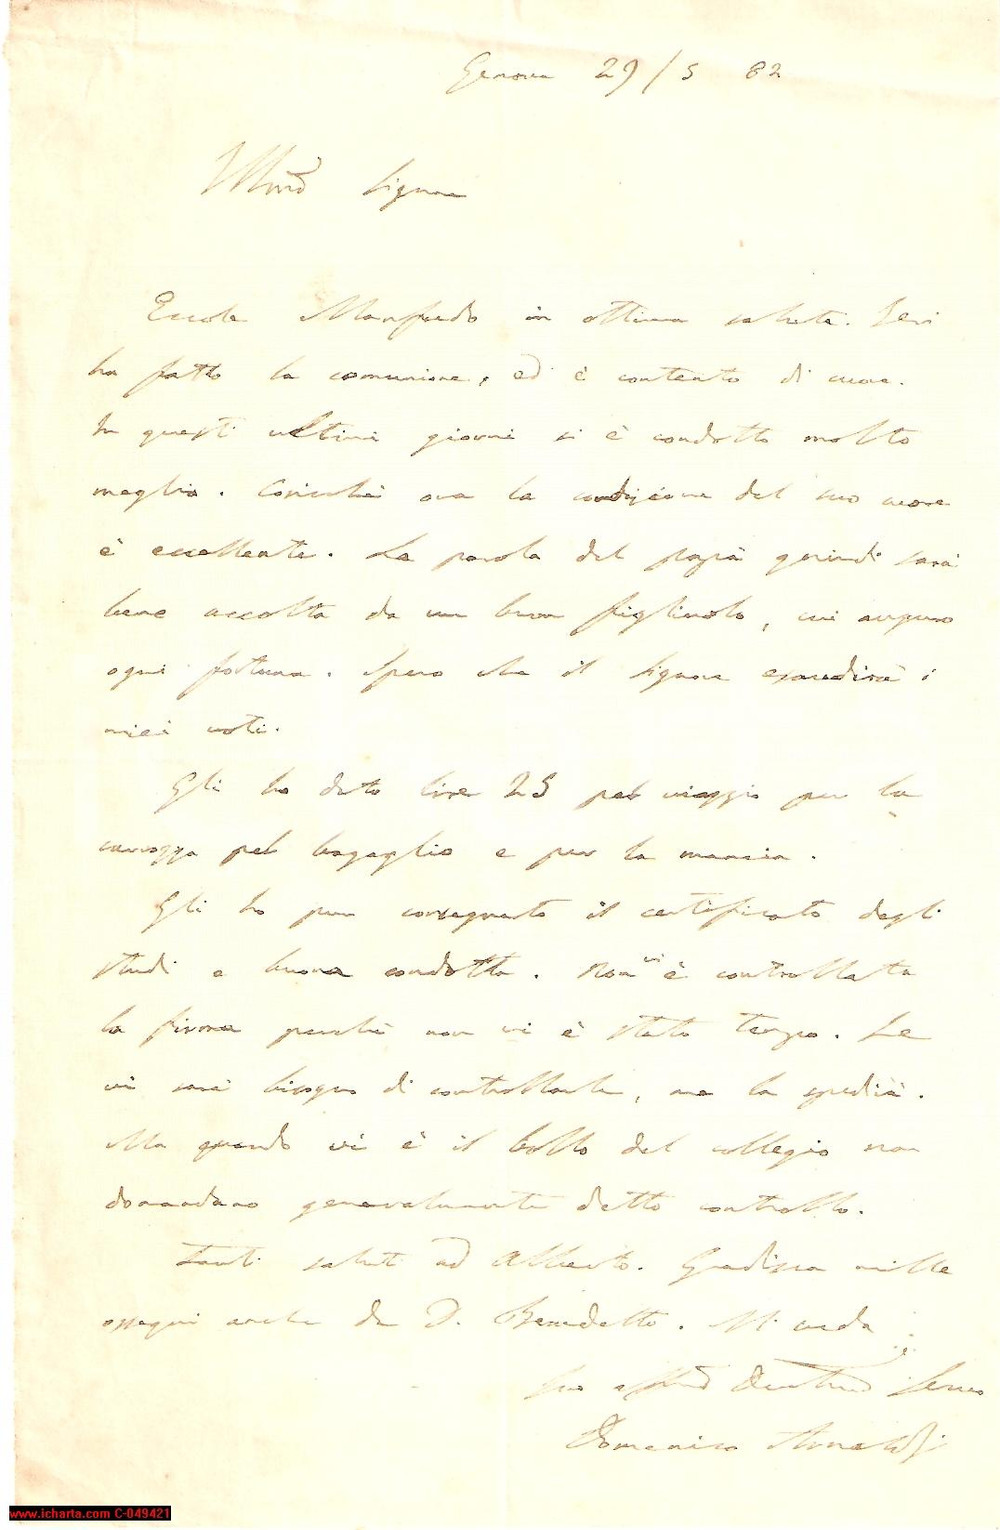 Genova 29/5 82
Ill.mo Signore
Eccole Manfredo in ottima salute. Ieri
ha fatto la comunione, ed è contento di cuore.
In questi ultimi giorni si è condotto molto
meglio. Cosicché ora la condizione del suo cuore
è eccellente. La parola del papà quindi sarà
bene accolta da un buon figliuolo, cui auguro
ogni fortuna. Spero che il Signore esaudirà i
miei voti.
Gli ho dato lire 25 pel viaggio per la
carrozza pel bagaglio e per la mancia.
Gli ho pur consegnato il certificato degli
studi e buona condotta. Non vi è controllata
la firma perché non vi è stato tempo. Se
vi sarà bisogno di controllarla, me la spedirà.
Ma quando vi è il bollo del collegio non
domandano generalmente detto controllo.
Tanti saluti ad Alberto. Gradisca mille
ossequi anche da D. Benedetto. Mi creda
Suo aff.mo Servo
Domenico
www.icharta.com C-049421